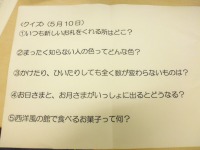 《クイズ》（５月１０日）
①いつも新しいお札をくれる所はどこ？
②まったく知らない人の色ってどんな色？
③かけたり、ひいたりしても全く数が変わらないものは？
④お日さまと、お月さまがいっしょに出るとどうなる？
⑤西洋風の館で食べるお菓子って何？